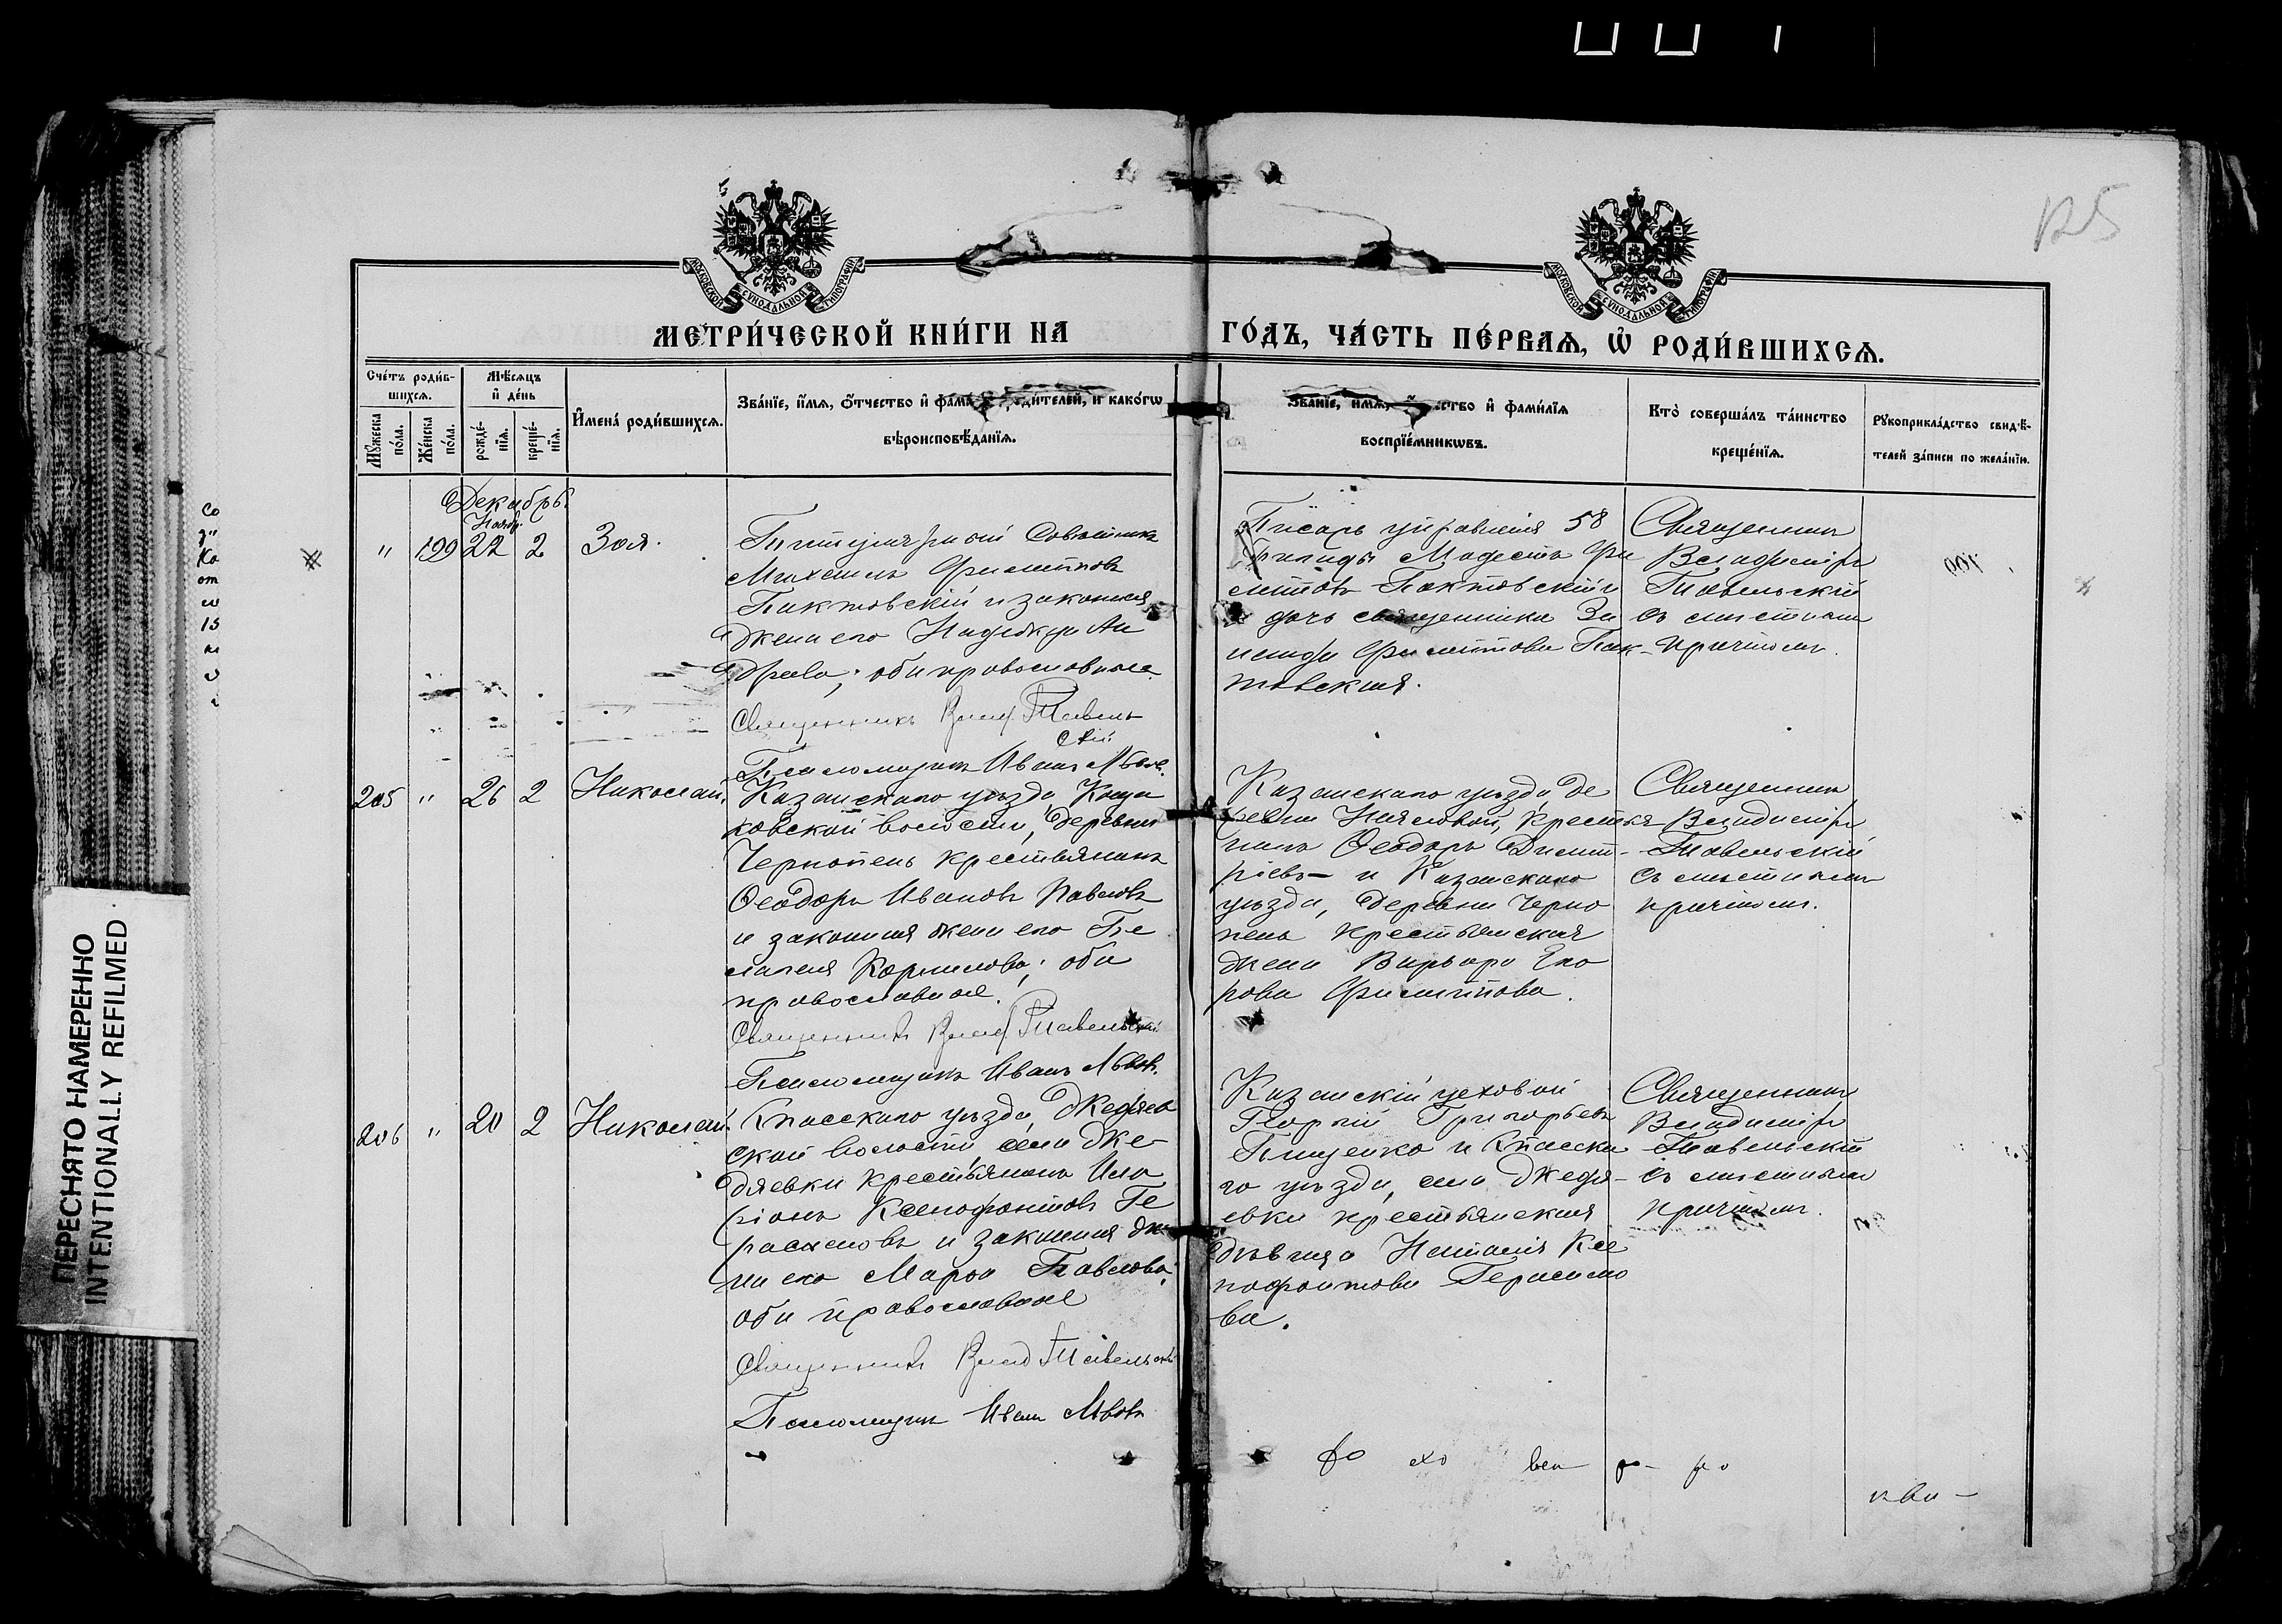 125
МОСКОВСКОЙ СѴНОДАЛЬНОЙ ТИПОГРАФІИ
МОСКОВСКОЙ СѴНОДАЛЬНОЙ ТИПОГРАФІИ
МЕТРИ́ЧЕСКОЙ КНИ́ГИ НА
ГО́ДЪ, ЧА́СТЬ ПЕ́РВАѦ, Ѡ҆ РОДИ́ВШИХСѦ.
Сче́тъ роди́в-
шихсѧ.
Мꙋ́жеска
по́ла.
Же́нска
по́ла.
Мѣ́сѧцъ
и҆ де́нь
рожде́-
нїѧ.
креще́-
нїѧ.
И҆мена̀ роди́вшихсѧ.
Зва́нїе, и҆́мѧ, ѻ҆́тчество и҆ роди́телей, и҆ како́гѡ
вѣроисповѣ́данїѧ.
Зва́нїе, и҆́мѧ, и҆ фами́лїѧ
воспрїе́мникѡвъ.
Кто̀ соверша́лъ та́инство
креще́нїѧ.
Рꙋкоприкла́дство свидѣ́-
телей за́писи по жела́нїю.
Декабрь.
Ноябр.
" 199 22 2 Зоя.
Титулярный Совѣтникъ
Михаилъ Филипповъ
Пактовскій и законная
жена его Надежда Ан
дреева; оба православные
Священникъ Влад. Тавель
скій
Псаломщикъ Иванъ Львовъ.
Писарь управленія 58
бригады Модестъ Фи
липповъ Пактовскій и
дочь священника Зи
наида Филиппова Пак-
товская.
Священникъ
Владиміръ
Тавельскій
съ мѣстнымъ
причтомъ.
205 " 26 2 Николай.
Казанскаго уѣзда
ковской волости, деревни
Чернопень крестьянинъ
Ѳеодоръ Ивановъ Павловъ
и законная жена его Пе
лагея Корнилова; оба
православные.
Священникъ Влад. Тавельскій
Псаломщикъ Иванъ Львовъ.
Казанскаго уѣзда, де
ревни крестья
нинъ Ѳеодоръ Дмит-
ріевъ и Казанскаго
уѣзда, деревни Черно
пень крестьянская
жена Варвара Его
рова Филиппова.
Священникъ
Владиміръ
Тавельскій
съ мѣстнымъ
причтомъ.
206 " 20 2 Николай.
Спасскаго уѣзда,
ской волости, села Жe-
дяевки крестьянинъ Ила
ріонъ Ксенофонтовъ Ге
расимовъ и законная же
на его Марѳа Павлова;
оба православные
Священникъ Влад. Тавельскій
Псаломщикъ Иванъ Львовъ
Казанскій цеховой
Георгій Григорьевъ
Пищенко и Спасска
го уѣзда, села Жедя-
евки крестьянская
дѣвица Наталія Ксе
нофонтова Герасимо
ва.
Священникъ
Владиміръ
Тавельскій
съ мѣстнымъ
причтомъ.
ПЕРЕСНЯТО НАМЕРЕННО
INTENTIONALLY REFILMED